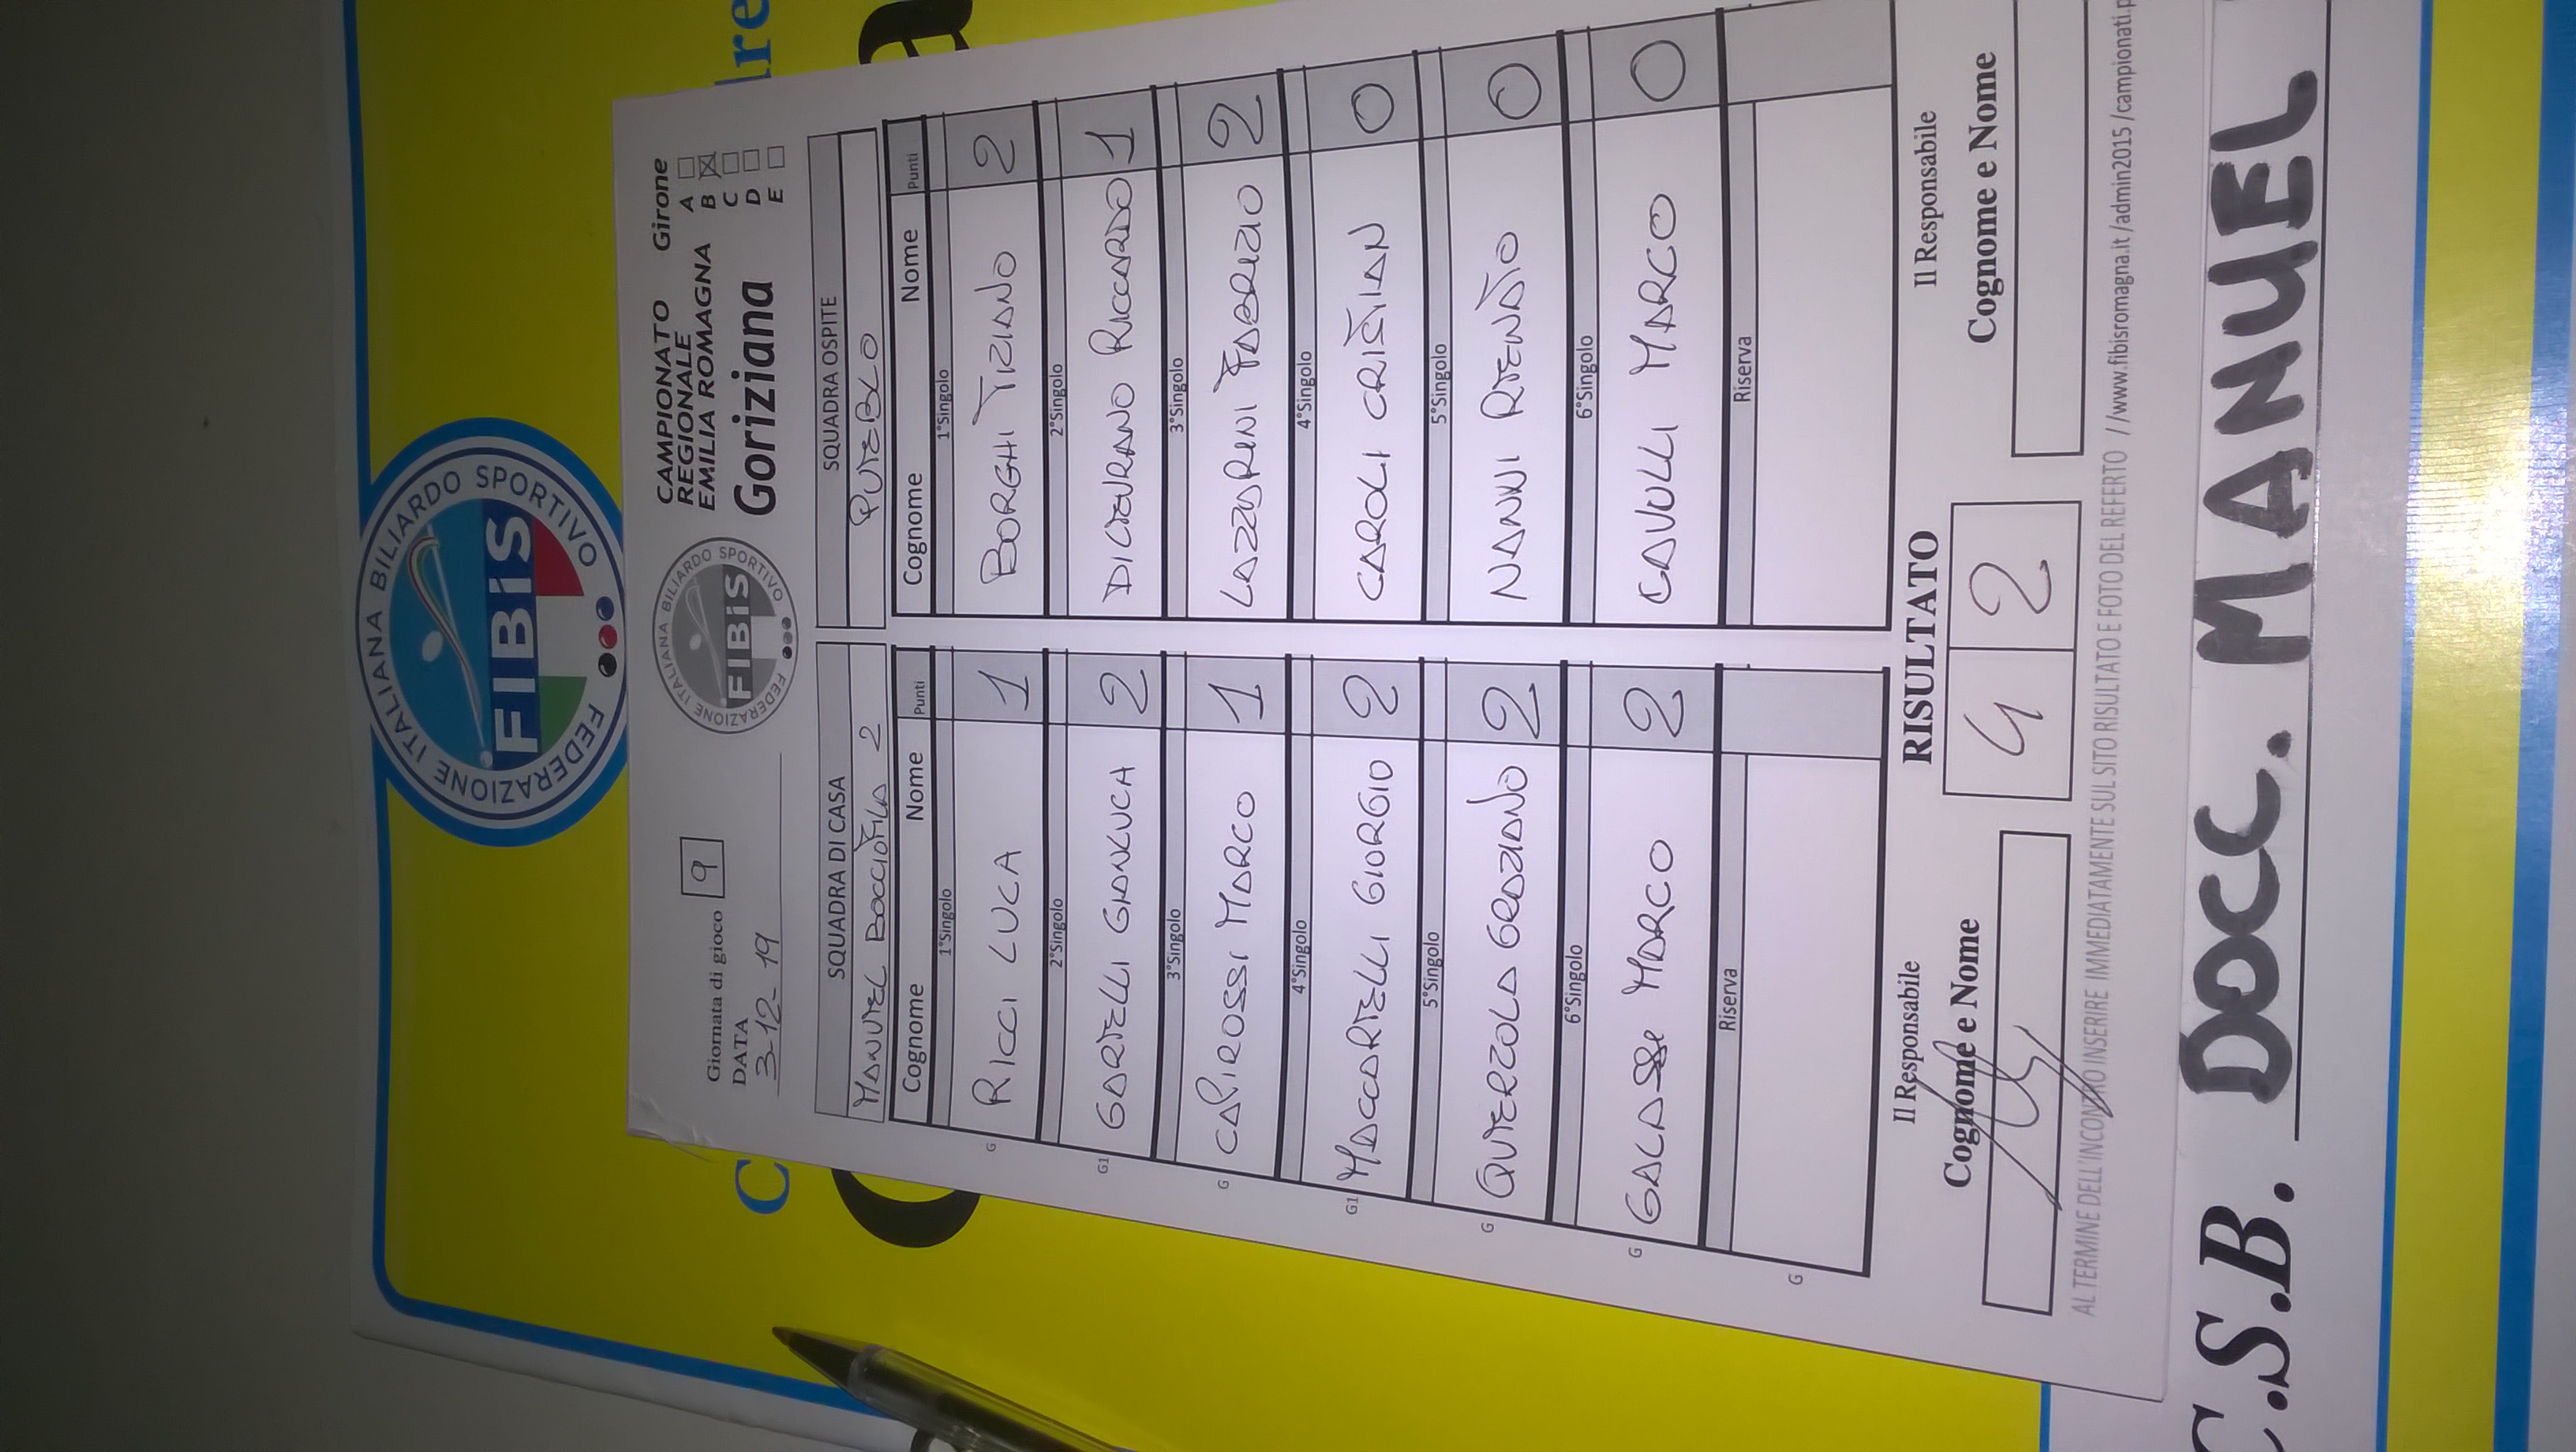 FEDERAZIONE ITALIANA BILIARDO SPORTIVO
FIBiS
Giornata di gioco 9
DATA
3-12-19
FEDERAZIONE ITALIANA BILIARDO SPORTIVO
FIBiS
CAMPIONATO
REGIONALE
EMILIA ROMAGNA
Goriziana
Girone
A
B
C
D
E
SQUADRA DI CASA SQUADRA OSPITE
MANUEL BOCCIOFILA 2
Cognome Nome Punti Cognome Nome Punti
1°Singolo 1°Singolo
G RICCI LUCA 1 BORGHI TIZIANO 2
2°Singolo 2°Singolo
G1 GARELLI GIANLUCA 2 RICCARDO 1
3°Singolo 3°Singolo
G CAPIROSSI MARCO 1 LAZZARINI FABRIZIO 2
4°Singolo 4°Singolo
G1 MACCARELLI GIORGIO 2 CAROLI CRISTIAN 0
5°Singolo 5°Singolo
G QUERZOLA GRAZIANO 2 NANNI RENATO 0
6°Singolo 6°Singolo
G GALASSI MARCO 2 CAVULLI MARCO 0
Riserva Riserva
G
Il Responsabile RISULTATO Il Responsabile
Cognome e Nome 4 2 Cognome e Nome
AL TERMINE DELL'INCONTRO INSERIRE IMMEDIATAMENTE SUL SITO RISULTATO E FOTO DEL REFERTO //www.fibisromagna.it/admin2015/campionati.p
C.S.B. DOCC. MANUEL